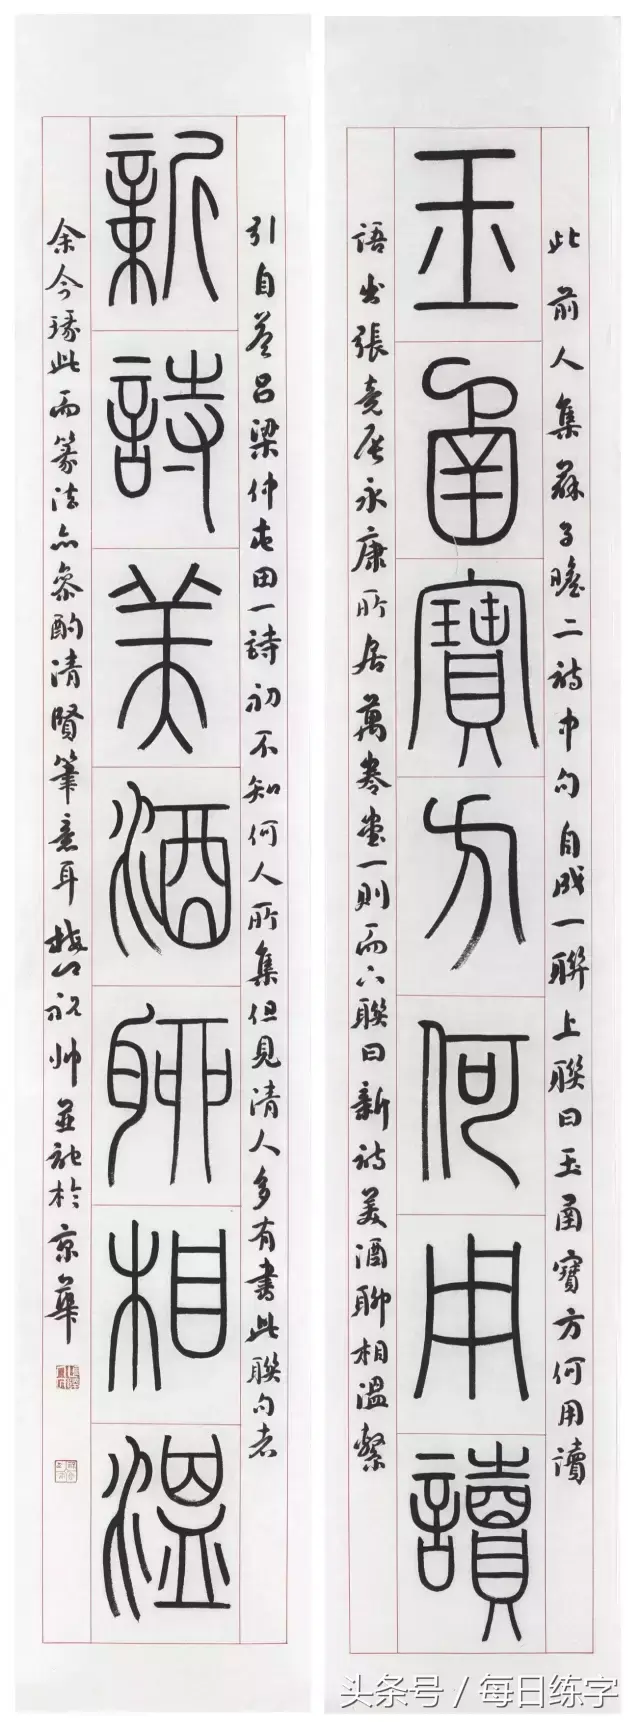 此前人集蘇子瞻二詩中句自成一聯上聯曰玉函寶方何用讀
玉函寶方何用讀
語出張競辰永康所居萬卷堂一則而下聯曰新詩美酒聊相溫繫
引自答呂梁仲屯田一詩初不知何人所集但見清人多有書此聯句者
新詩美酒聊相溫
余今琢此而篆法亦參酌清賢筆意耳祝帅並記於京華
头条号/每日练字